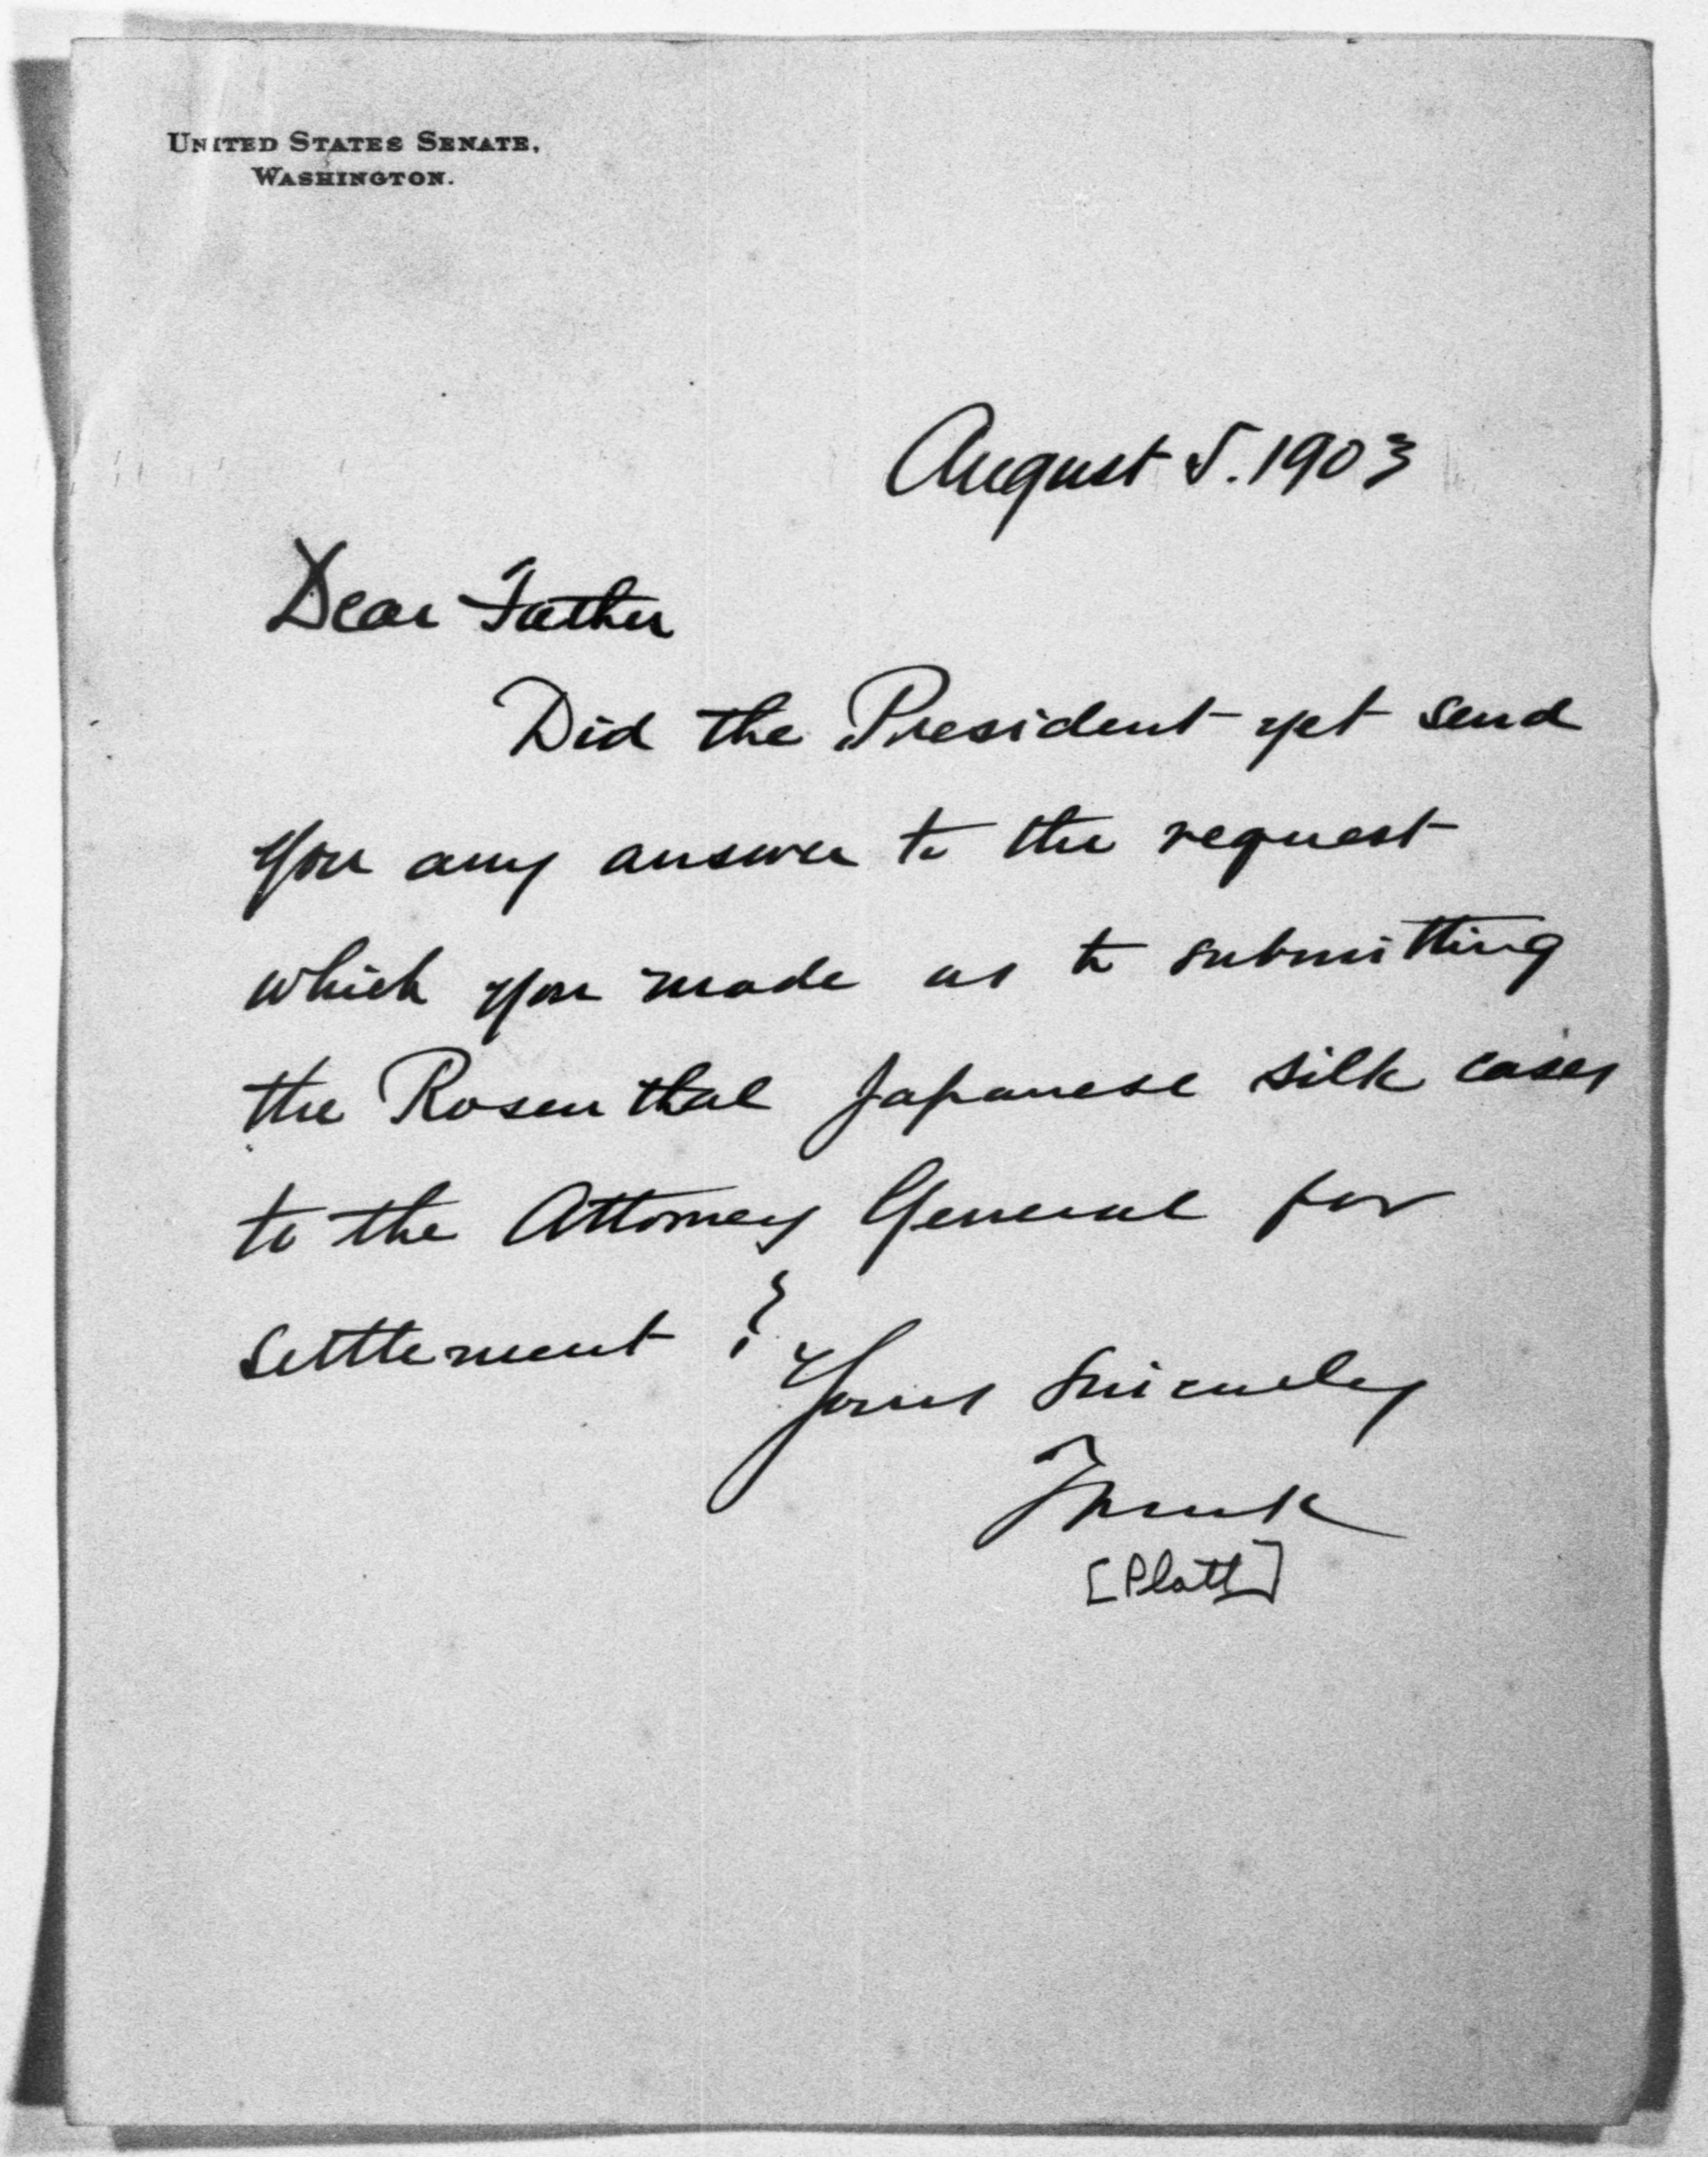 UNITED STATES SENATE,
WASHINGTON.
August 5. 1903
Dear Father
Did the President yet send
you any answer to the request
which you made as to submitting
the Rosenthal Japanese silk cases
to the Attorney General for
settlement ?
Yours Sincerely
Frank
[Platt]